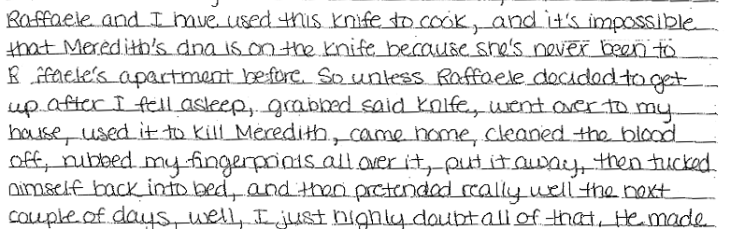 Raffaele and I have used this knife to cook, and it's impossible
that Meredith's dna is on the knife because she's never been to
R ffaele's apartment before. So unless Raffaele decided to get
up after I fell asleep, grabbed said knife, went over to my
house, used it to kill Meredith, came home, cleaned the blood
off, rubbed my fingerprints all over it, put it away, then tucked
himself back into bed, and then pretended really well the next
couple of days, well, I just highly doubt all of that. He made